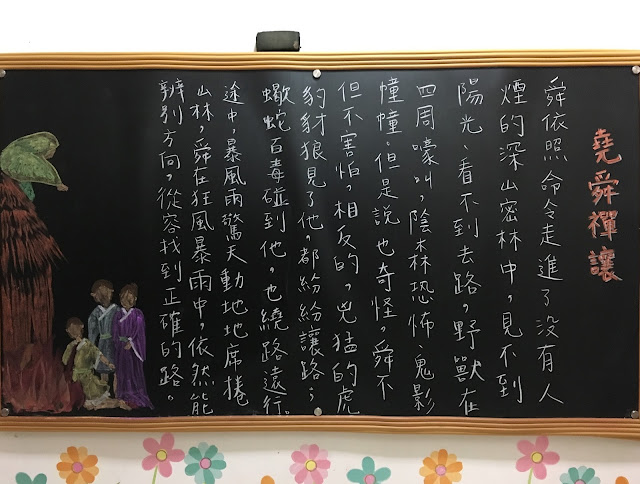 堯舜禪讓
舜依照命令走進了沒有人
煙的深山密林中，見不到
陽光、看不到去路。野獸在
四周嚎叫，陰森恐怖、鬼影
幢幢。但是說也奇怪，舜不
但不害怕，相反的，兇猛的虎
豹豺狼見了他，都紛紛讓路；
蠍蛇百毒碰到他，也繞路遠行。
途中，暴風雨驚天動地地席捲
山林，舜在狂風暴雨中，依然能
辨別方向，從容找到正確的路。